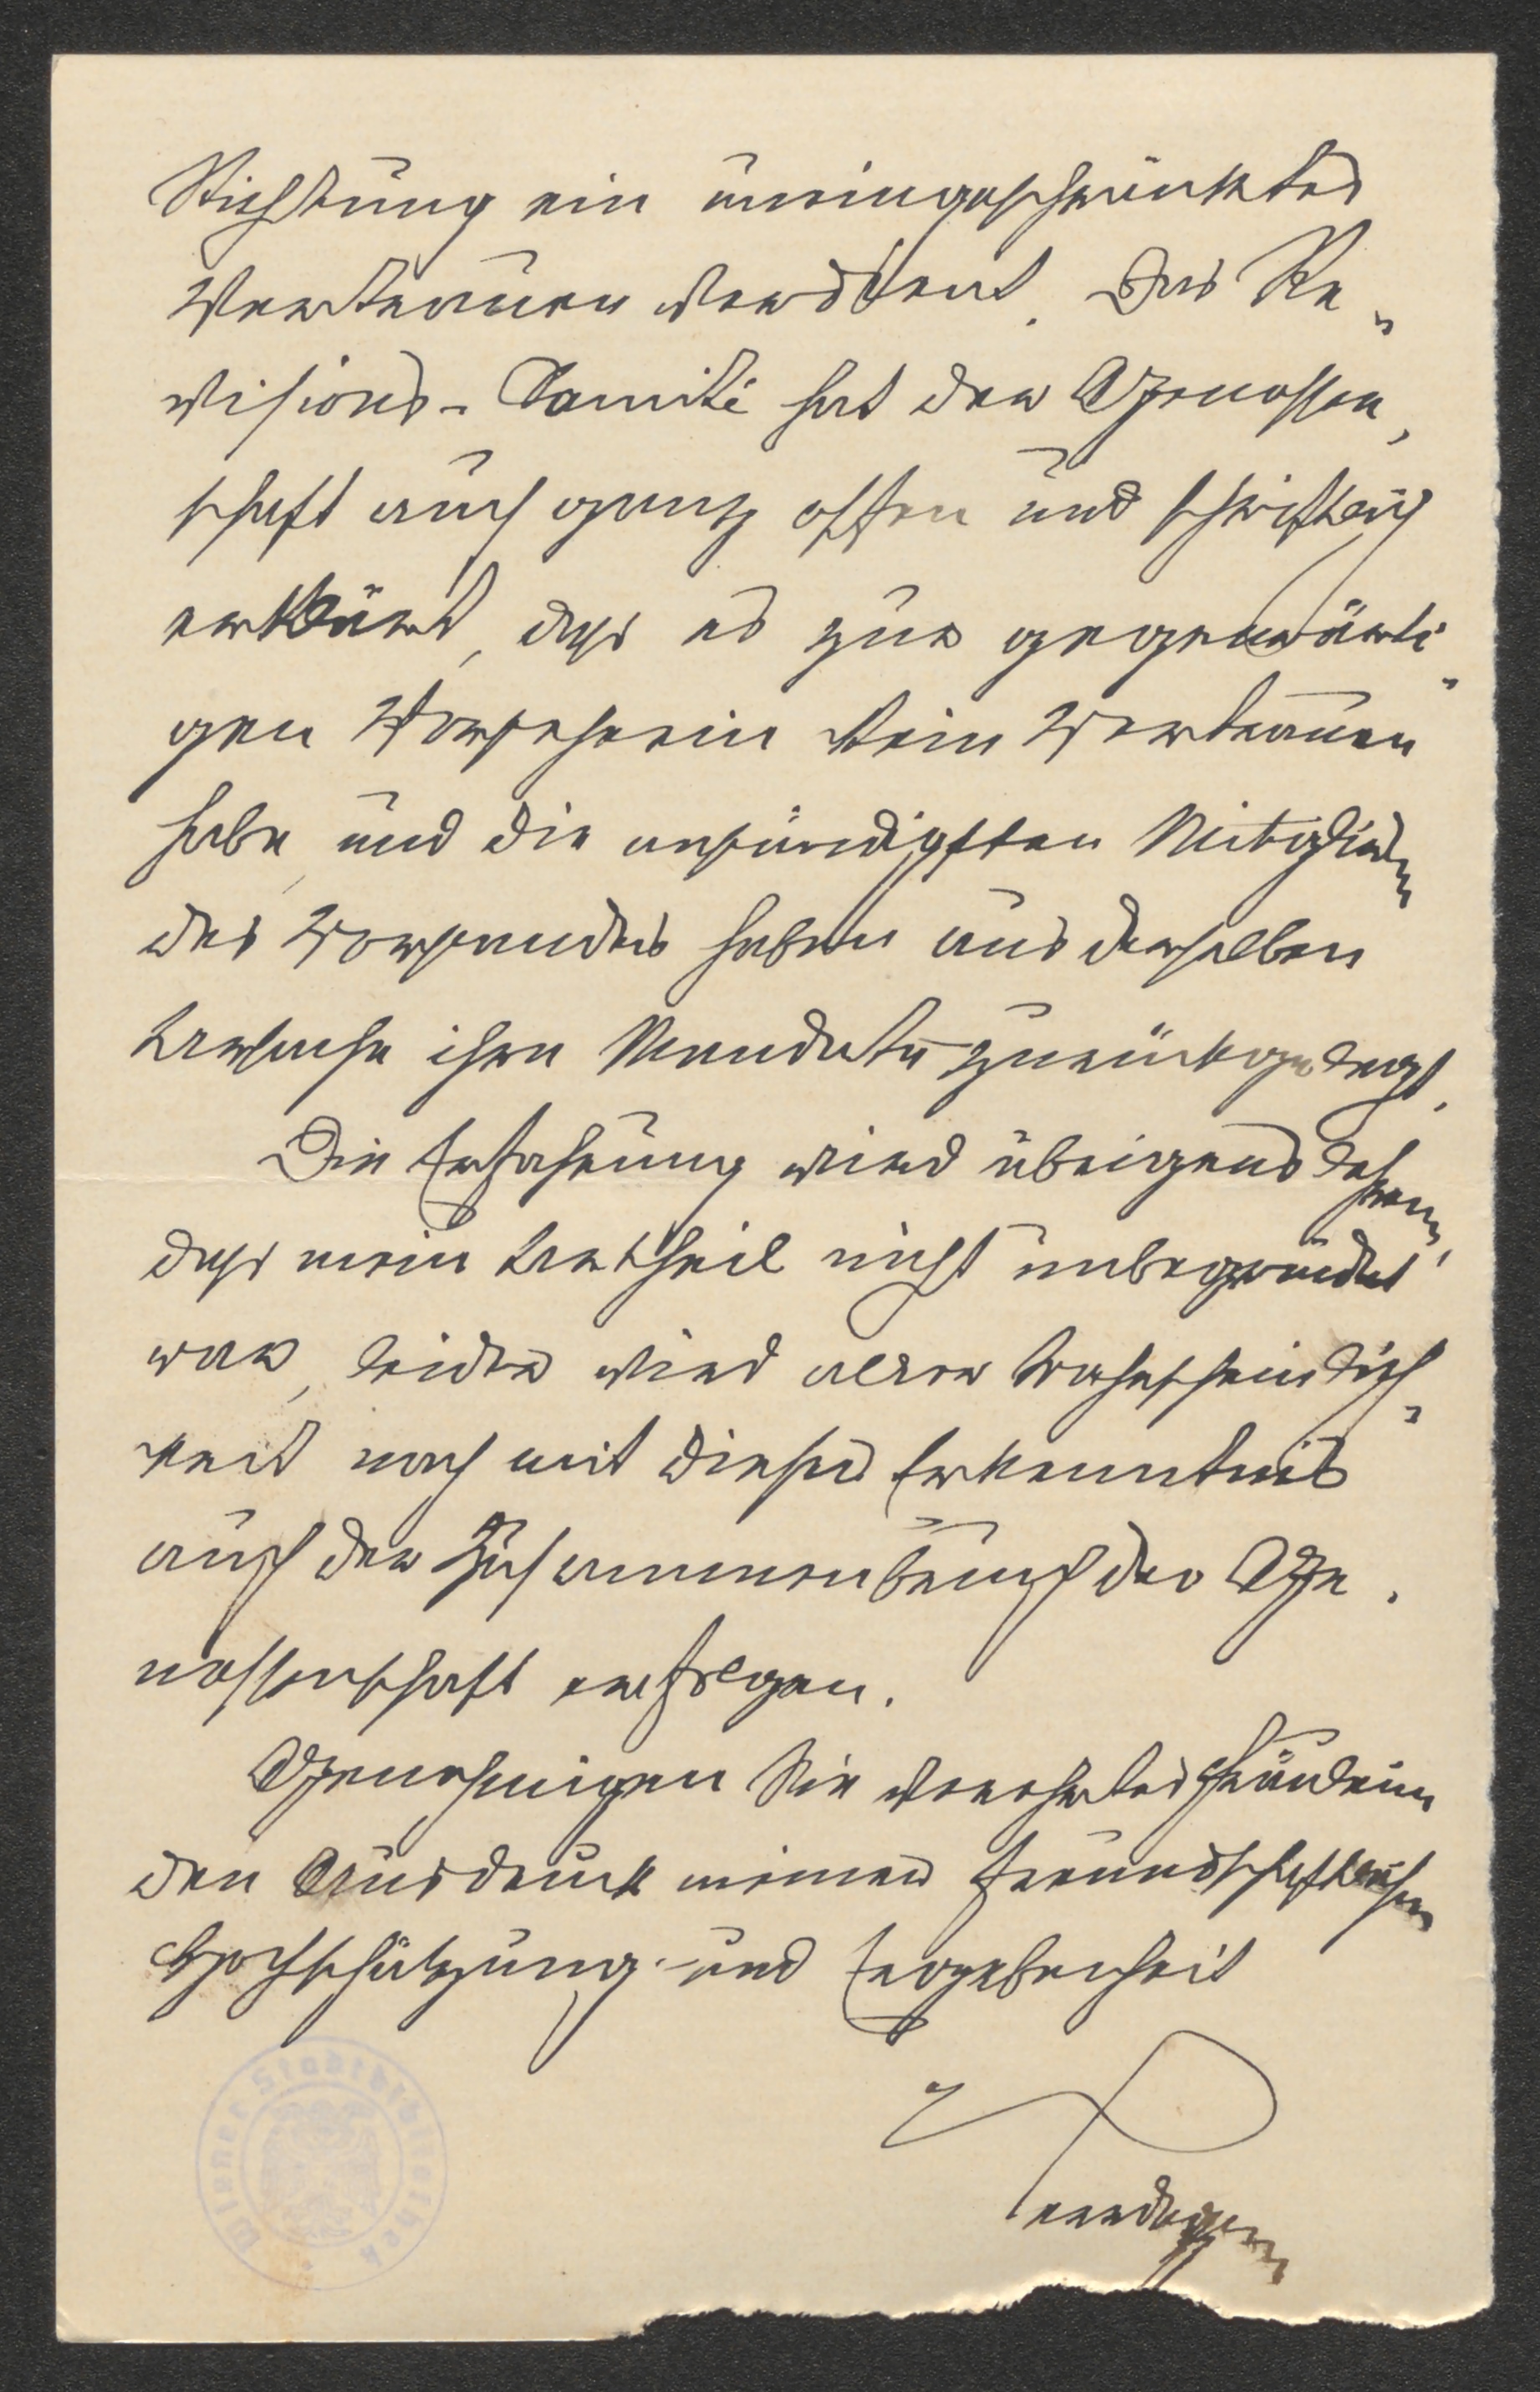 Richtung ein uneingeschränktes
Vertrauen verdient. Das Re„
visions-Comité hat der Genossen„
schaft auch ganz offen und schriftlich
erklärt, daß es zur gegenwärti„
gen Vorsteherin kein Vertrauen
habe, und die anständigsten Mitglieder
des Vorstandes haben aus derselben
Ursache ihre Mandate zurückgelegt.
Die Erfahrung wird übrigens lehren,
daß mein Urtheil nicht unbegründet
war, leider wird aller Wahrscheinlich„
keit nach mit dieser Erkenntnis
auch der Zusammenbruch der Ge„
nossenschaft erfolgen.
Genehmigen Sie verehrtes Fräulein
den Ausdruck meiner freundschaftlichen
Hochschätzung und Ergebenheit
Wiener Stadtbibliothek